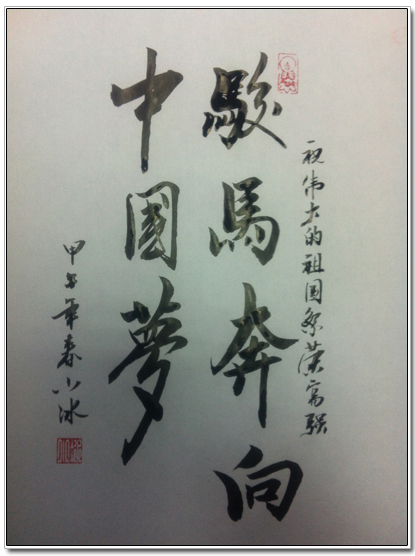 祝伟大的祖国繁荣富强
駿馬奔向
中國夢
甲午年春小冰